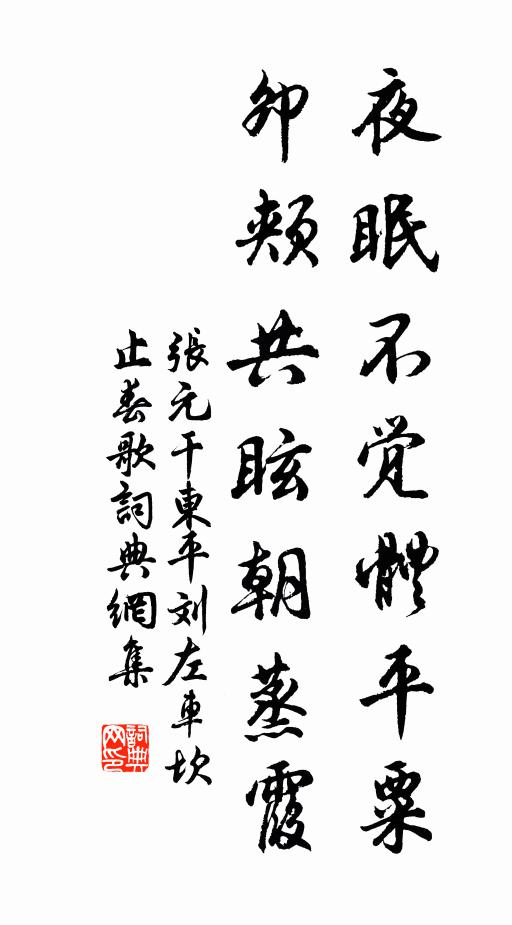 夜眠不觉體平粟
卯頰共眩朝蒸霞
張元干東平刘左車坎
止春歌詞典網集
詞典网印